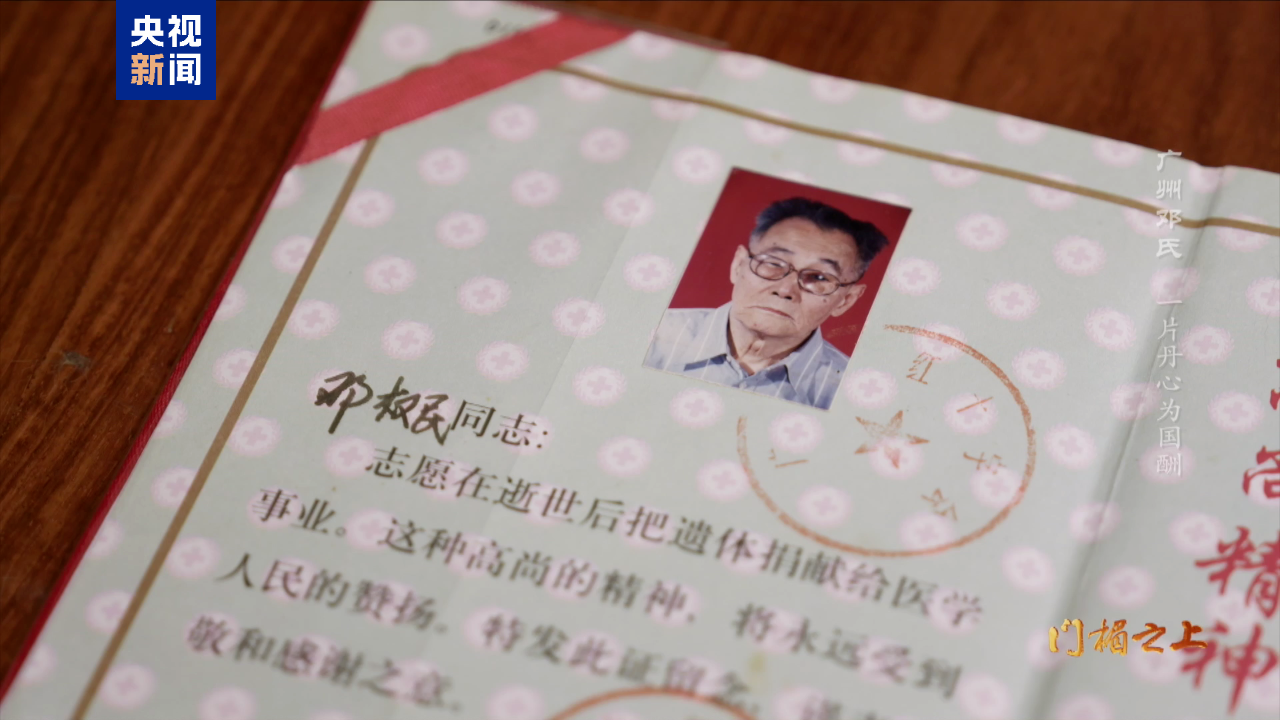 央视
新闻
广州邓氏 一片丹心为国酬
红十字会
邓叔民同志：
志愿在逝世后把遗体捐献给医学
事业。这种高尚的精神，将永远受到
人民的赞扬。特发此证留念，谨表
敬和感谢之意。
精神
门楣之上